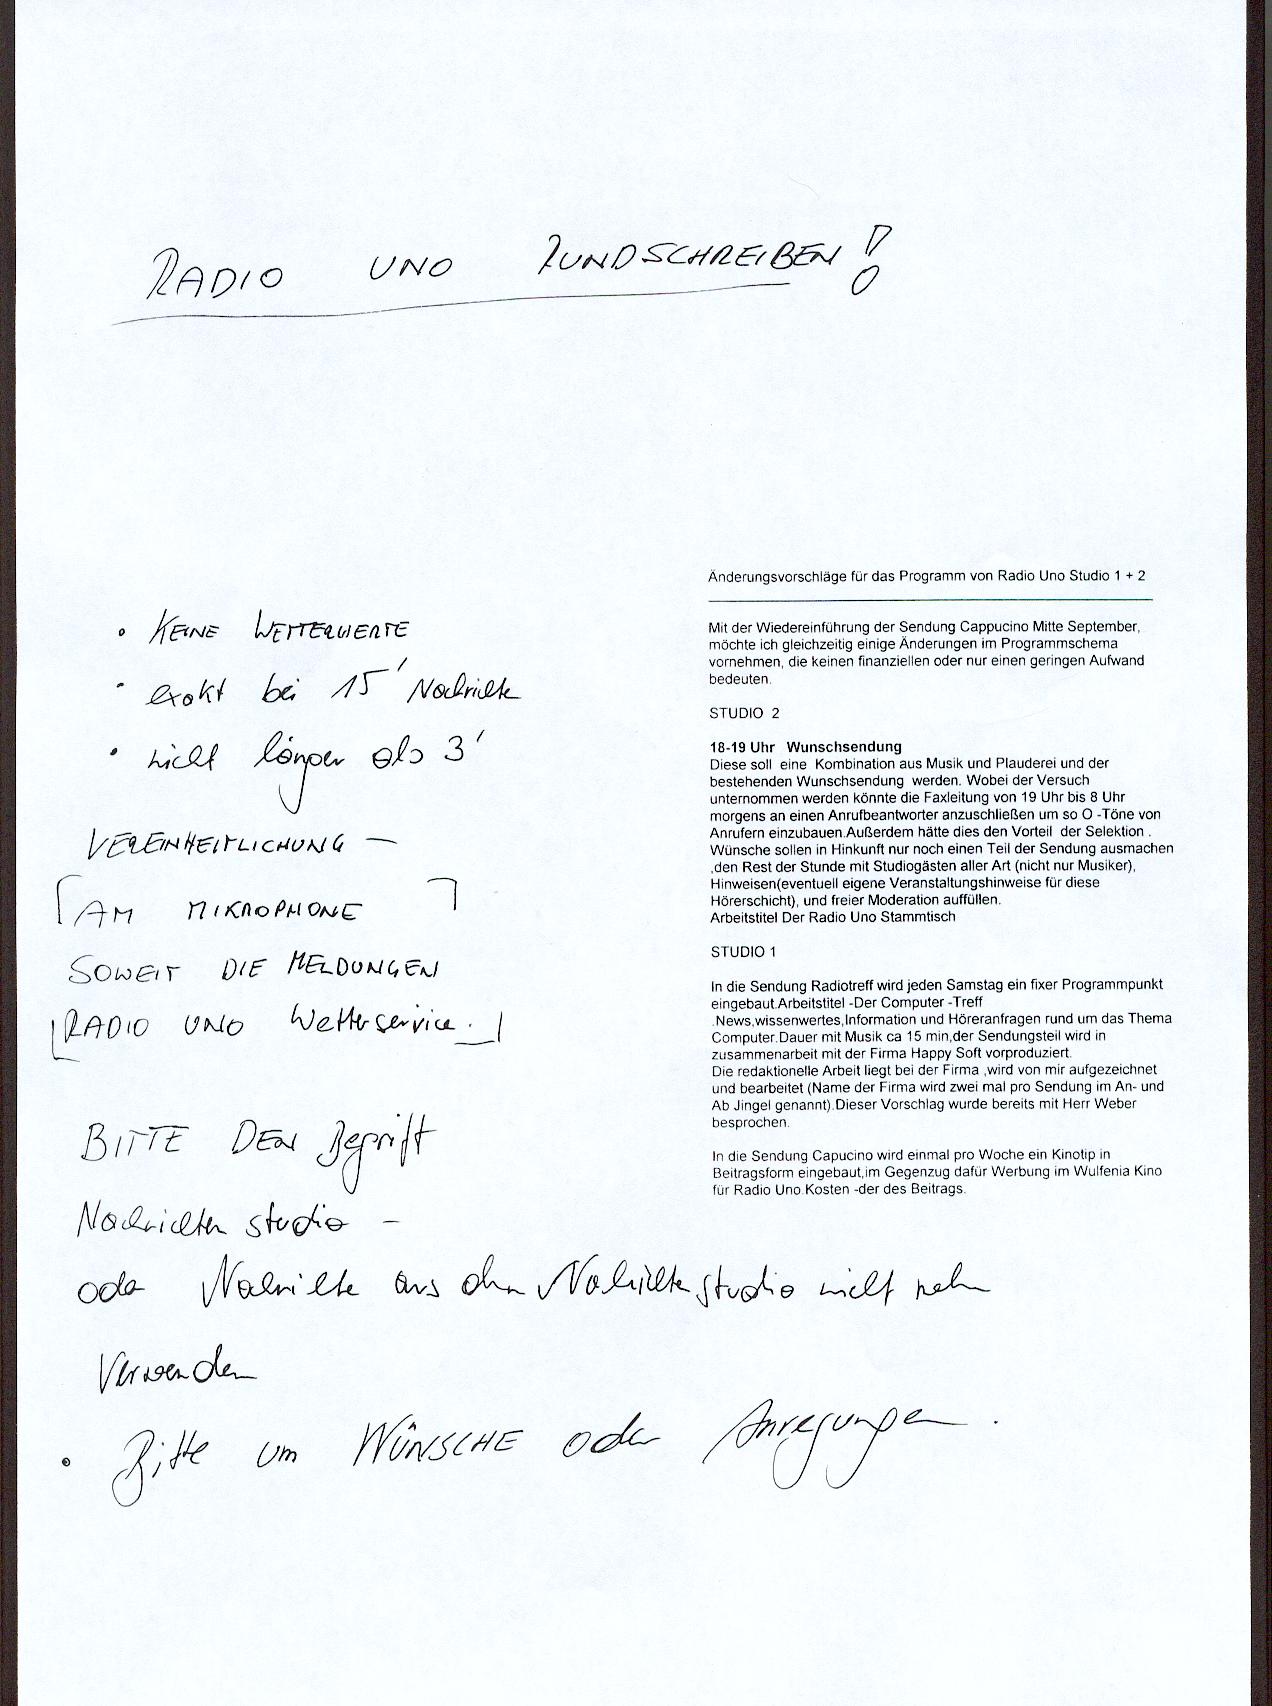 RADIO UNO RUNDSCHREIBEN!
• KEINE WETTERWERTE
• exakt bei 15' Nachrichten
• nicht länger als 3'
VEREINHEITLICHUNG —
AM MIKROPHONE
SOWEIT DIE MELDUNGEN
RADIO UNO Wetterservice.
BITTE DEN Begriff
Nachrichtenstudio —
oder Nachrichten aus dem Nachrichtenstudio nicht mehr
Verwenden
• Bitte um WÜNSCHE oder Anregungen.
Änderungsvorschläge für das Programm von Radio Uno Studio 1 + 2
Mit der Wiedereinführung der Sendung Cappucino Mitte September,
möchte ich gleichzeitig einige Änderungen im Programmschema
vornehmen, die keinen finanziellen oder nur einen geringen Aufwand
bedeuten.
STUDIO 2
18-19 Uhr Wunschsendung
Diese soll eine Kombination aus Musik und Plauderei und der
bestehenden Wunschsendung werden. Wobei der Versuch
unternommen werden könnte die Faxleitung von 19 Uhr bis 8 Uhr
morgens an einen Anrufbeantworter anzuschließen um so O -Töne von
Anrufern einzubauen.Außerdem hätte dies den Vorteil der Selektion .
Wünsche sollen in Hinkunft nur noch einen Teil der Sendung ausmachen
,den Rest der Stunde mit Studiogästen aller Art (nicht nur Musiker),
Hinweisen(eventuell eigene Veranstaltungshinweise für diese
Hörerschicht), und freier Moderation auffüllen.
Arbeitstitel Der Radio Uno Stammtisch
STUDIO 1
In die Sendung Radiotreff wird jeden Samstag ein fixer Programmpunkt
eingebaut.Arbeitstitel -Der Computer -Treff
.News,wissenwertes,Information und Höreranfragen rund um das Thema
Computer.Dauer mit Musik ca 15 min,der Sendungsteil wird in
zusammenarbeit mit der Firma Happy Soft vorproduziert.
Die redaktionelle Arbeit liegt bei der Firma ,wird von mir aufgezeichnet
und bearbeitet (Name der Firma wird zwei mal pro Sendung im An- und
Ab Jingel genannt).Dieser Vorschlag wurde bereits mit Herr Weber
besprochen.
In die Sendung Capucino wird einmal pro Woche ein Kinotip in
Beitragsform eingebaut,im Gegenzug dafür Werbung im Wulfenia Kino
für Radio Uno.Kosten -der des Beitrags.